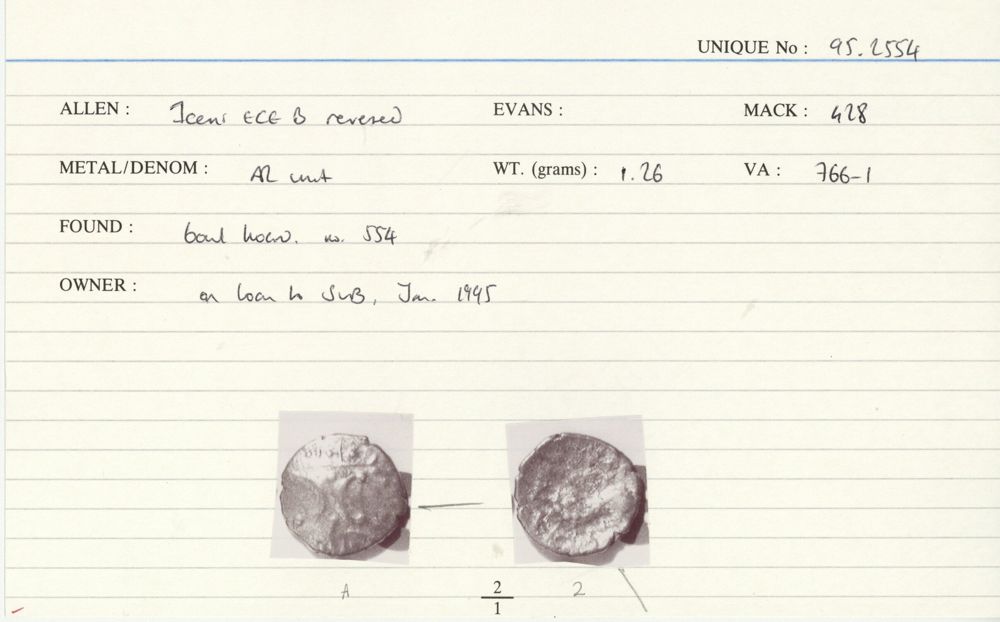 UNIQUE No : 95.2554
ALLEN : Iceni ECE B reversed EVANS : MACK : 428
METAL/DENOM : AR unit WT. (grams) : 1.26 VA : 766-1
FOUND : hoard. no. 554
OWNER : on loan to SWB, Jan. 1995
A 2 2
1